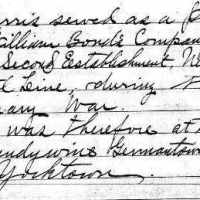 rris served as a
illiam Bond's Compan
Second Establishment
Line, during
ary War.
was therefore at
ndywine Germantown
Yorktown.